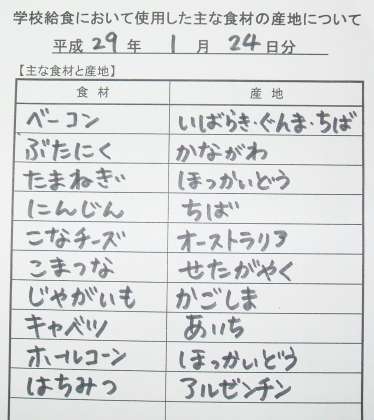 学校給食において使用した主な食材の産地について
平成 29 年 1 月 24 日分
【主な食材と産地】
食材 産地
ベーコン いばらき・ぐんま・ちば
ぶたにく かながわ
たまねぎ ほっかいどう
にんじん ちば
こなチーズ オーストラリア
こまつな せたがやく
じゃがいも かごしま
キャベツ あいち
ホールコーン ほっかいどう
はちみつ アルゼンチン